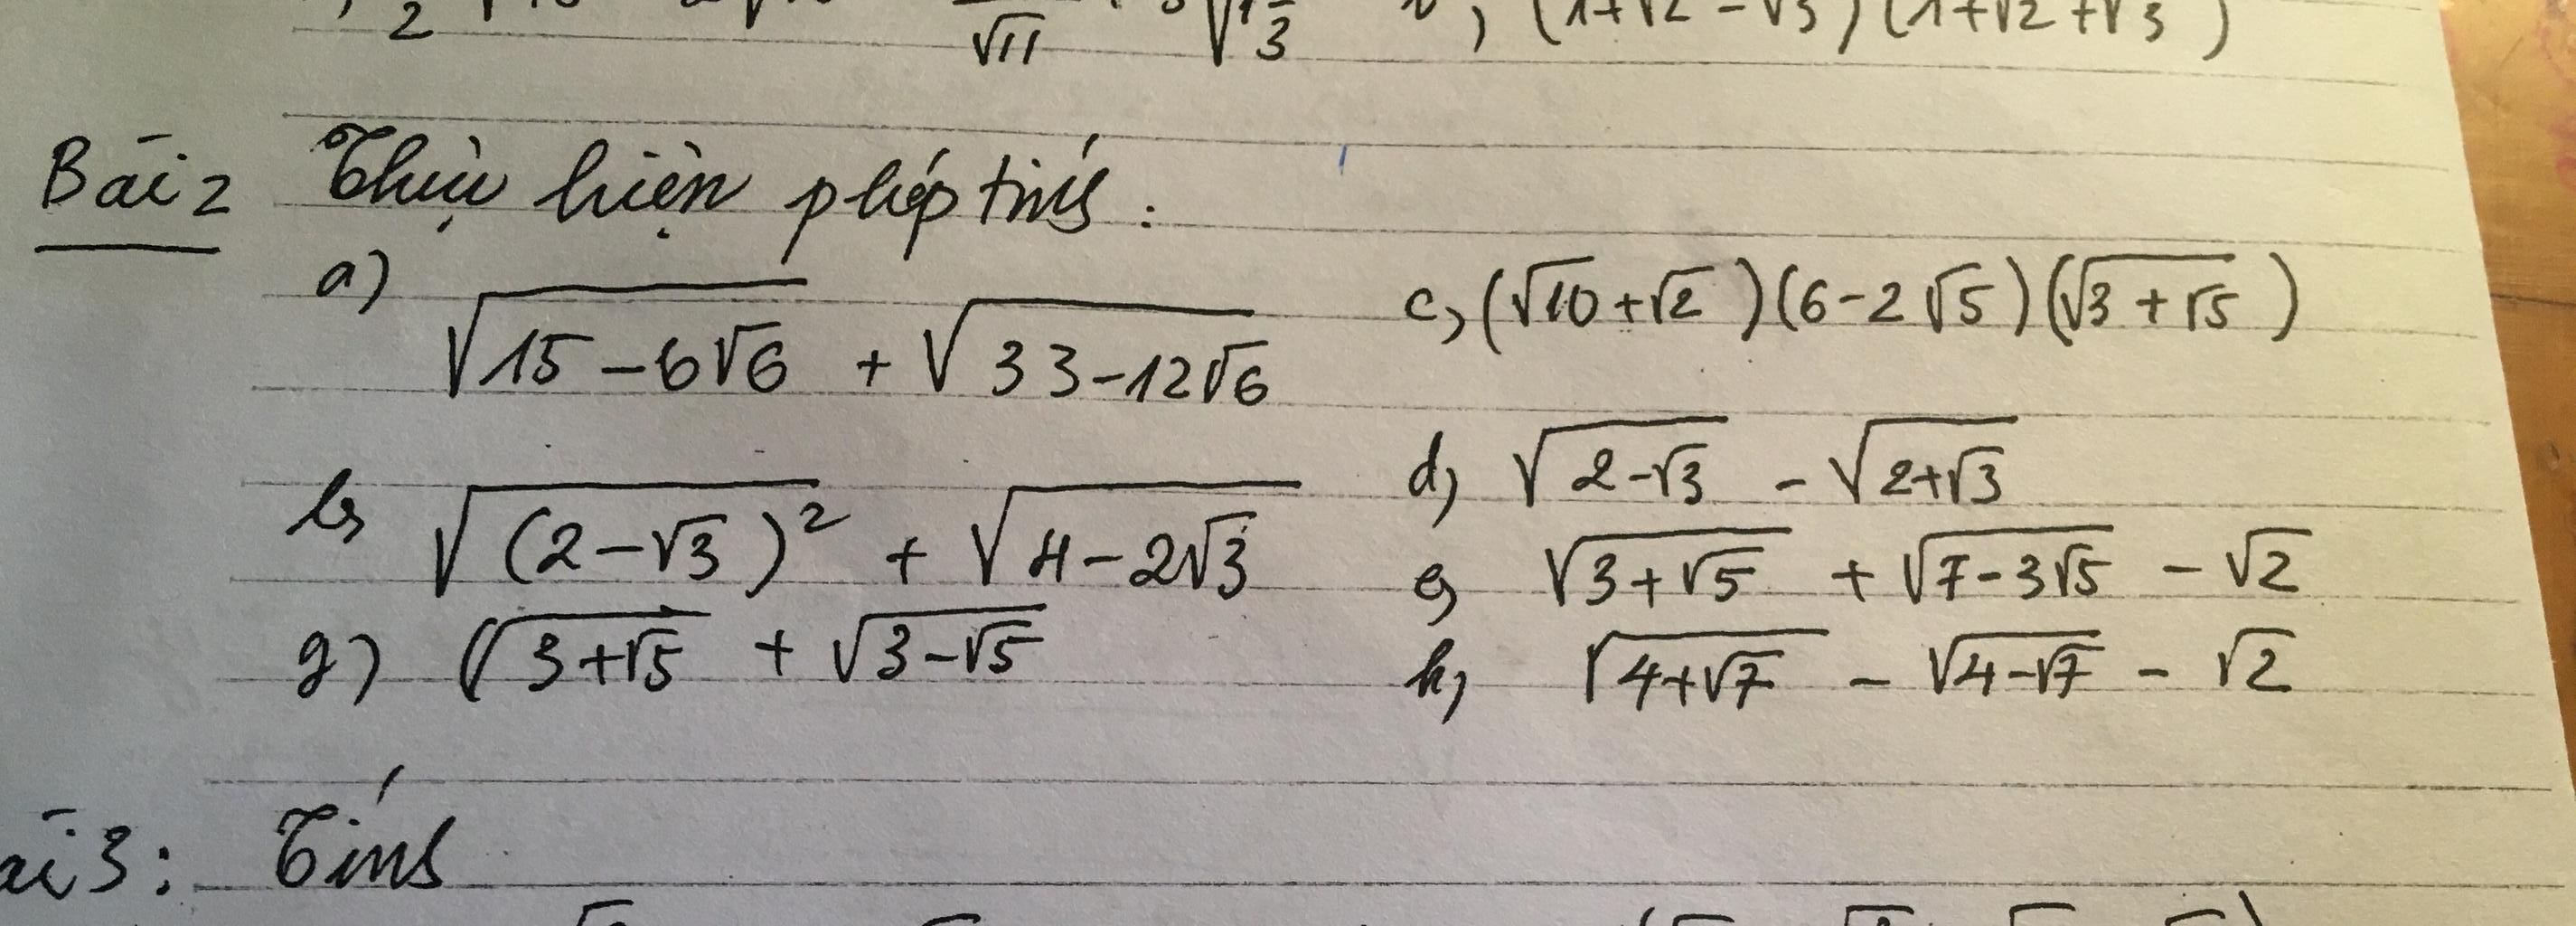 2 √11 √ 3 (1+√2-√3)(1+√2+√3)
Bài 2 Thực hiện phép tính :
a) √(15-6√6) + √(33-12√6)
c, (√10+√2)(6-2√5)(√(3+√5))
b, √((2-√3)²) + √(4-2√3)
d, √(2-√3) - √(2+√3)
e, √(3+√5) + √(7-3√5) - √2
g) √(3+√5) + √(3-√5)
h, √(4+√7) - √(4-√7) - √2
ài 3: Tính